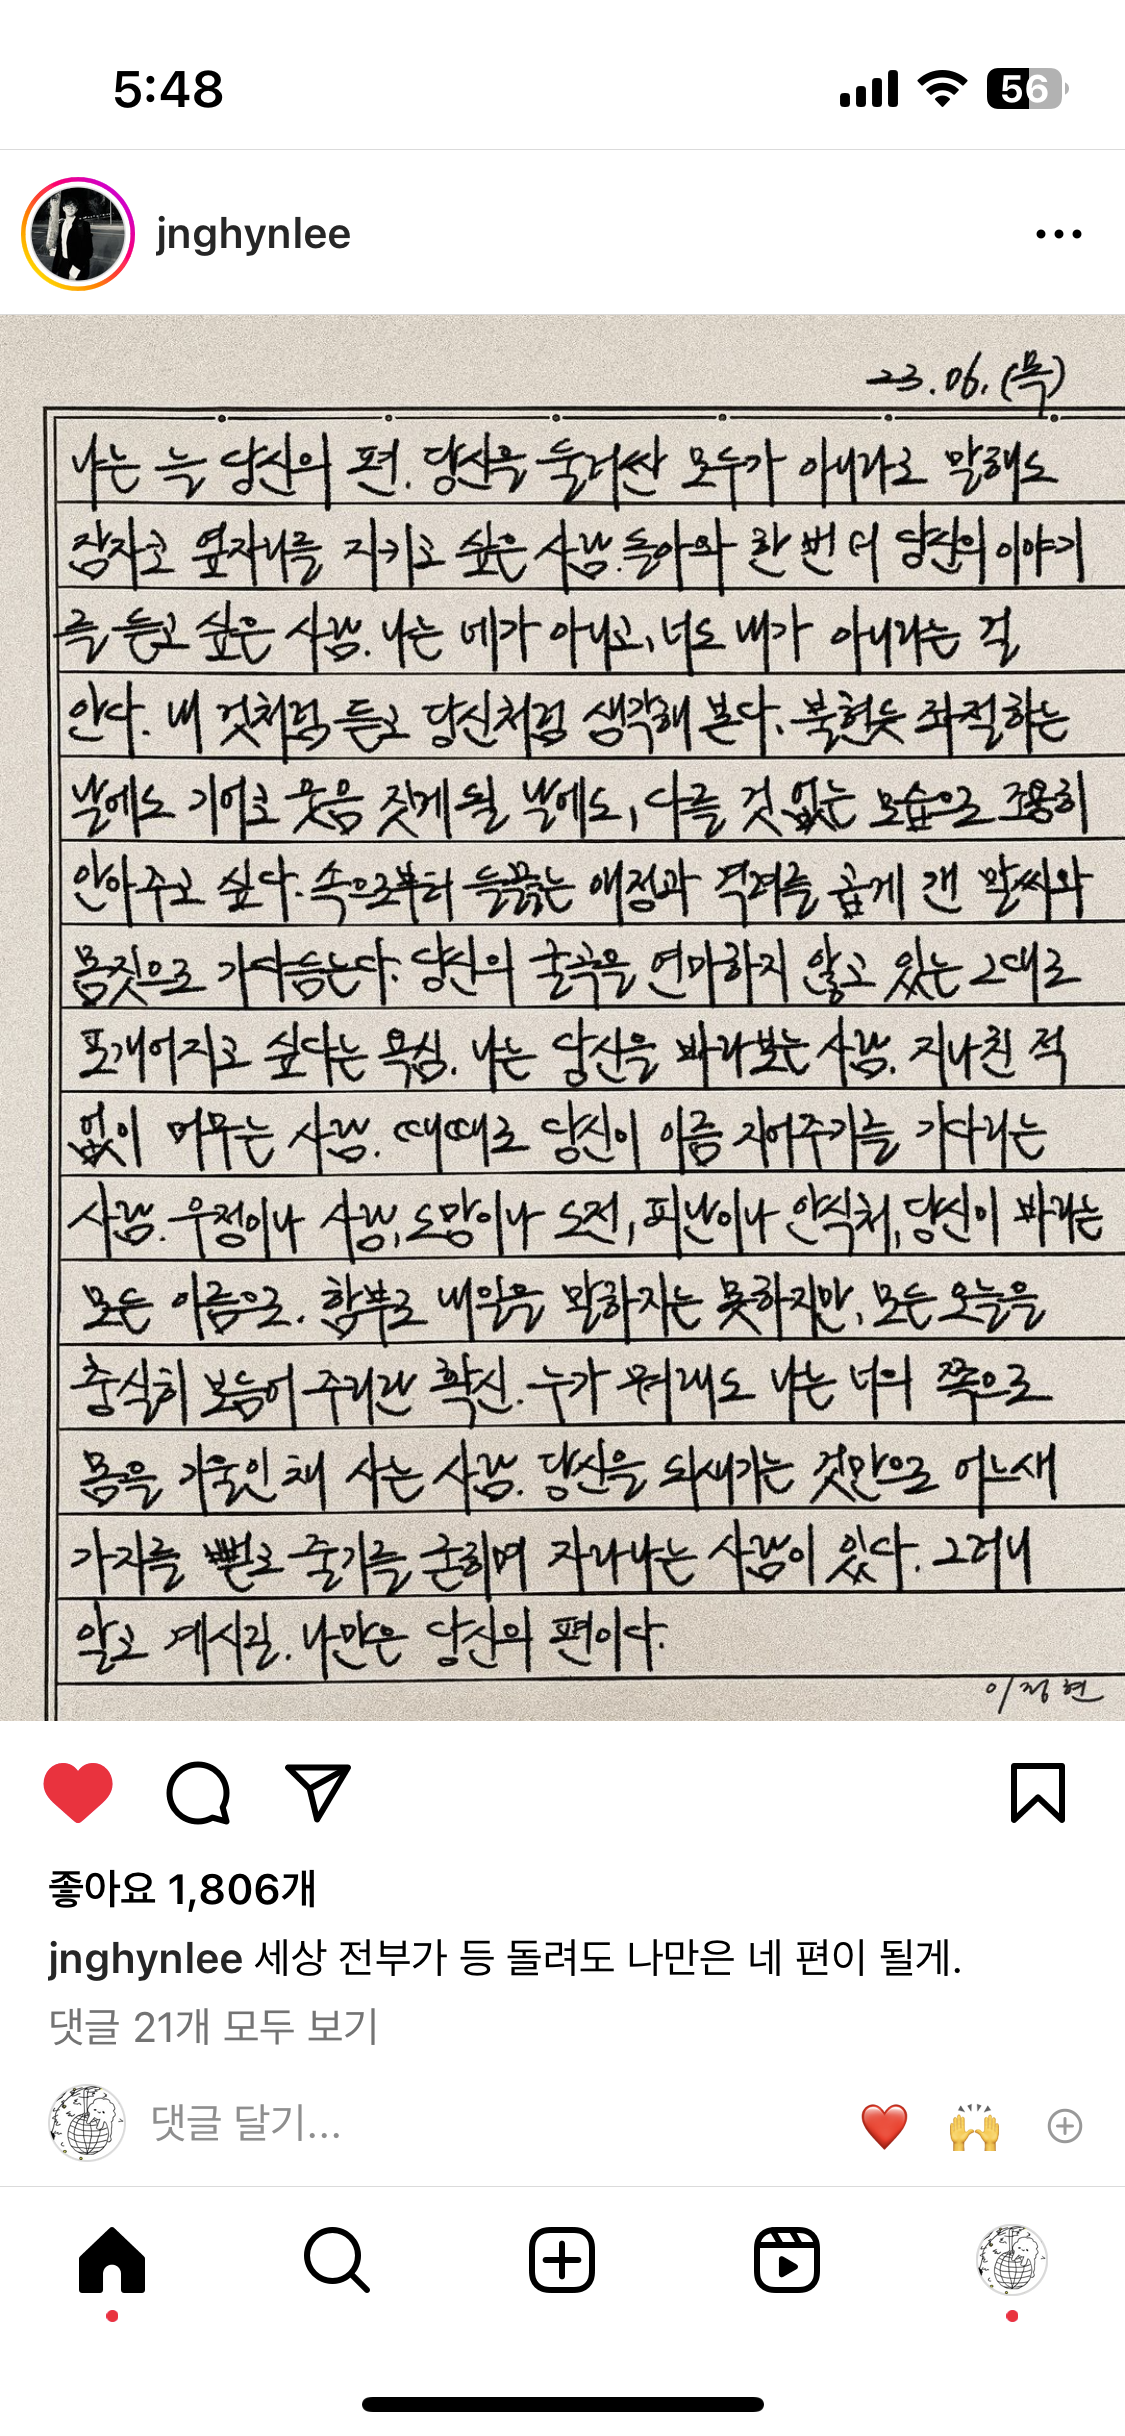 5:48
56
jnghynlee
23.06.(목)
나는 늘 당신의 편. 당신을 둘러싼 모두가 아니라고 말해도
잠자코 옆자리를 지키고 싶은 사람. 돌아와 한 번 더 당신의 이야기
를 듣고 싶은 사람. 나는 네가 아니고, 너도 내가 아니라는 걸
안다. 내 것처럼 듣고 당신처럼 생각해 본다. 불현듯 좌절하는
날에도 기어코 웃음 짓게 될 날에도, 다를 것 없는 모습으로 조용히
안아주고 싶다. 속으로부터 들끓는 애정과 격려를 곱게 갠 말씨와
몸짓으로 가다듬는다. 당신의 굴곡을 연마하지 않고 있는 그대로
포개어지고 싶다는 욕심. 나는 당신을 바라보는 사람. 지나친 적
없이 머무는 사람. 때때로 당신이 이름 지어주기를 기다리는
사람. 우정이나 사랑, 도망이나 도전, 피난이나 안식처, 당신이 바라는
모든 이름으로. 함부로 내일을 말하지는 못하지만, 모든 오늘을
충실히 보듬어 주리란 확신. 누가 뭐래도 나는 너의 쪽으로
몸을 기울인 채 사는 사람. 당신을 되새기는 것만으로 어느새
가지를 뻗고 줄기를 굳히며 자라나는 사람이 있다. 그러니
알고 계시길. 나만은 당신의 편이다.
이정현
좋아요 1,806개
jnghynlee 세상 전부가 등 돌려도 나만은 네 편이 될게.
댓글 21개 모두 보기
댓글 달기...